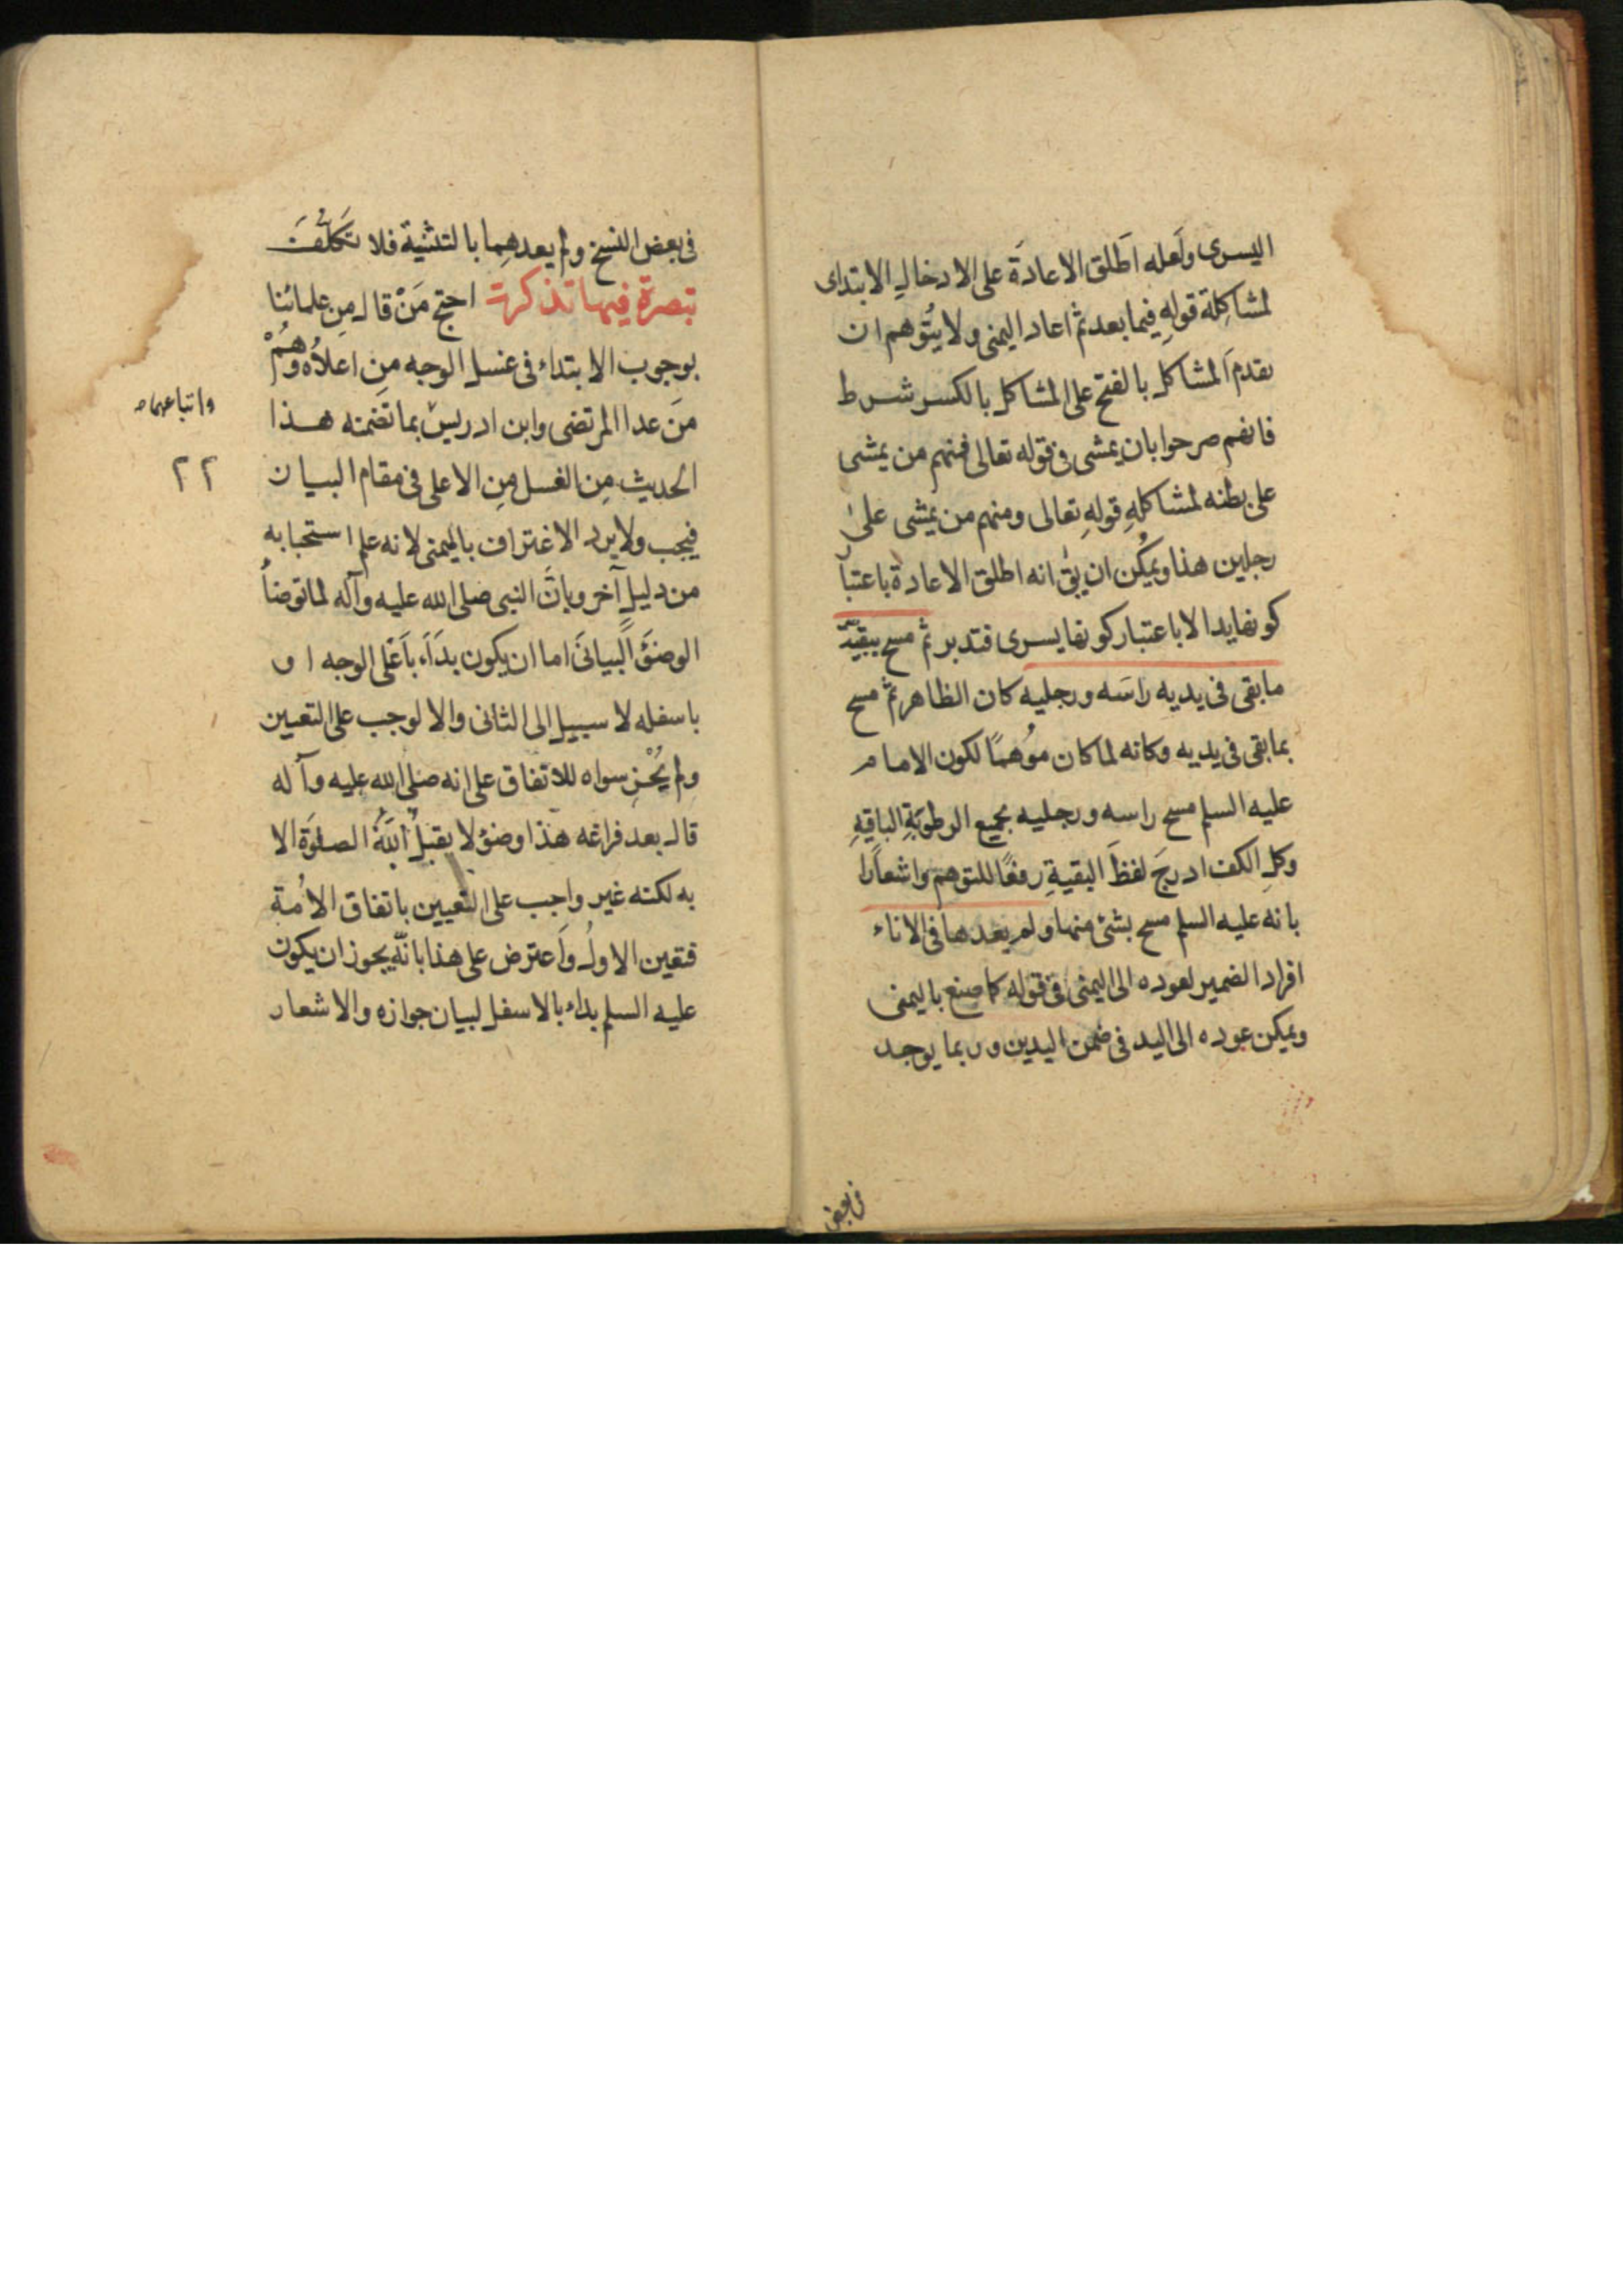 اليسرى ولعله اَطلق الاعادَة على الادخالِ الابتداى
لمشاكِلة قولِهِ فيما بعد ثم اعاد اليمنى ولا يُتوهم ان
يقدمَ المشاكل بالفتح على المشاكل بالكسر شرط
فانهم صرحوا بان يمشى فى قوله تعالى فمنهم من يمشى
على بطنه لمشاكلهِ قولهِ تعالى ومنهم من يمشى على
رجلين هذا ويمكن ان يق انه اطلق الاعادة باعتبا
كونها يدا لا باعتبار كونها يسرى فتدبر ثم مسح ببقيّة
ما بقى فى يديه راسَه ورجليه كان الظاهر ثم مسح
بما بقى فى يديه وكانه لما كان مُوهمًا لكون الامام
عليه السلم مسح راسه ورجليه بجميع الرطوبَةِ الباقيهِ
وكلِ الكف ادرجَ لفظَ البقيةِ رفعًا للتوهم واشعارًا
بانه عليه السلم مسح بشئ منها ولم يعدها فى الاناء
افراد الضمير لعوده الى اليمنى فى قوله كما صنع باليمنى
ويمكن عوده الى اليد فى ضمن اليدين وربما يوجد
فى بعض
فى بعض النسخ ولم يعدهما بالتثنية فلا تكلّفَ
تبصرة فيها تذكرة احتج مَنْ قال مِن علمائنا
بوجوب الابتداء فى غسل الوجه مِن اعلاُه وهُمْ
مَن عدا المرتضى وابن ادريس بما تضمنه هذا
واتباعهما ص
الحديث مِن الغسل مِن الاعلى فى مقام البيان
٢٢
فيجب ولا يرد الاغتراف باليمنى لانه علم استحبابه
من دليل آخر وبانَّ النبى صلى الله عليه وآله لما توضأ
الوضوَ البيانىَ اما ان يكون بدَاَء باَعْلى الوجه او
باسفله لا سبيل الى الثانى والا لوجب على التعيين
ولم يُجْزِ سواه للاتفاق على انه صلى الله عليه وآله
قال بعد فراغه هذا وضوٌ لا يقبلُ اللَّهُ الصلوَة الا
به لكنه غير واجب على التعيين باتفاق الاُمة
فتعين الاولُ واَعترض على هذا بانّه يجوز ان يكون
عليه السلم بداء بالاسفل لبيان جوازه والاشعار